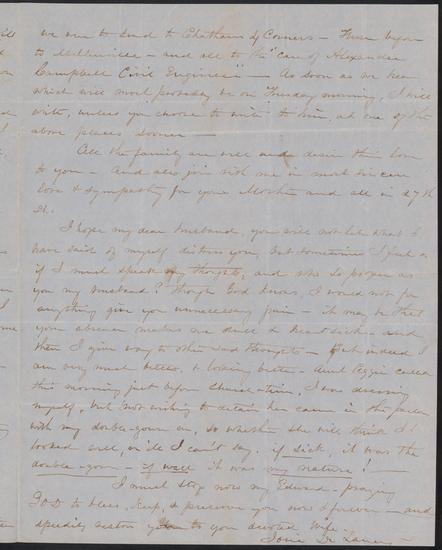 we are to send to Chathams 4 Corners – Three before
to Mellenville – and all to the "care of Alexander
Campbell Civil Engineer" – As soon as we hear
which will most probably be on Tuesday morning, I will
write, unless you choose to write to him, at one of the
above places sooner –
All the family are well and desire their love
to you – And also join with me in most sincere
love & sympathy for your Mother and all in 27th
St.
I hope my dear husband, you will not let what I
have said of myself distress you, but sometimes I feel as
if I must speak my thoughts, and who so proper as
you my husband? though God knows, I would not for
anything give you unnecessary pain – it may be that
your absence makes me dull & heartsick – and
then I give way to other sad thoughts – But indeed I
am very much better, & looking better – Aunt Eggie called
this morning just before Church-time, I was dressing
myself, but not wishing to detain her came in the parlor
with my double-gown on, so whether she will think I
looked well, or ill I can't say. if sick, it was the
double-gown – if well it was my nature! –
I must stop now my Edward – praying
God to bless, keep, & preserve you now & forever – and
speedily restore you to your devoted Wife